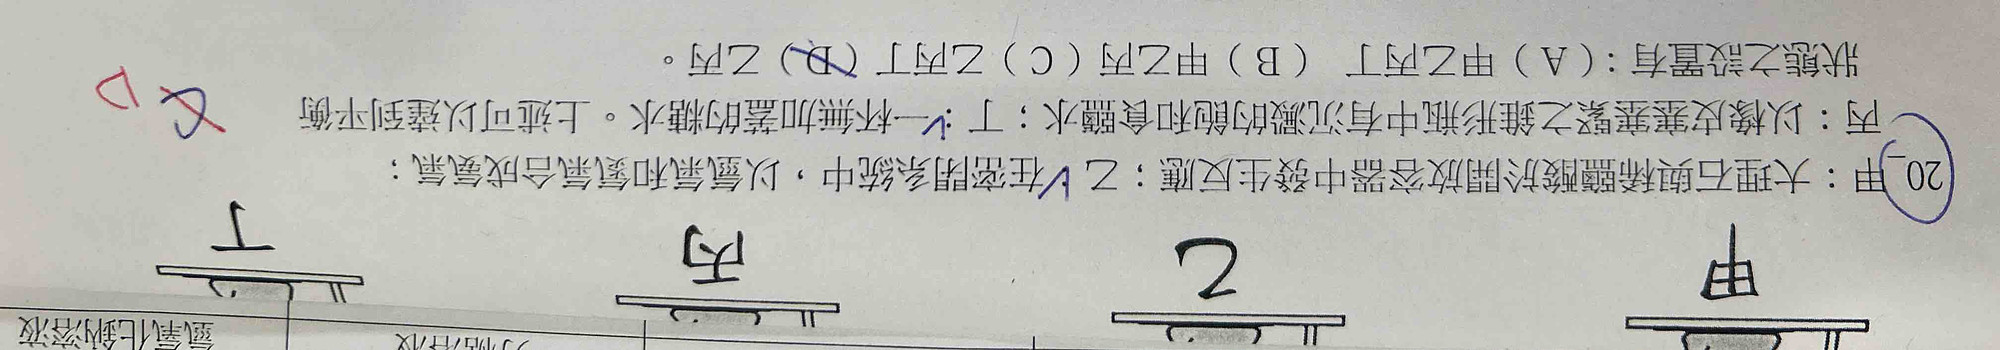 氫氧化鈉溶液
甲 乙 丙 丁
20. 甲：大理石與稀鹽酸於開放容器中發生反應；乙：在密閉系統中，以氫氣和氮氣合成氨氣；
丙：以橡皮塞塞緊之錐形瓶中有沉澱的飽和食鹽水；丁：一杯無加蓋的糖水。上述可以達到平衡
狀態之設置有：（A）甲乙丙丁 （B）甲乙丙（C）乙丙丁（D）乙丙。
D